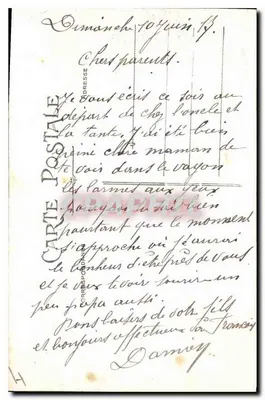 Dimanche 10 Juin 17.
Chers parents.
Je vous écris ce soir au
départ de chez l'oncle et
la tante. J'ai été bien
peiné chère maman de
te voir dans le wagon
les larmes aux yeux
bien
pourtant que le moment
s'approche où j'aurai
le bonheur d'être près de vous
et je veux te voir sourire un
peu papa aussi.
Bons baisers de votre fils
et bonjours affectueux
CARTE POSTALE
CORRESPONDANCE
ADRESSE